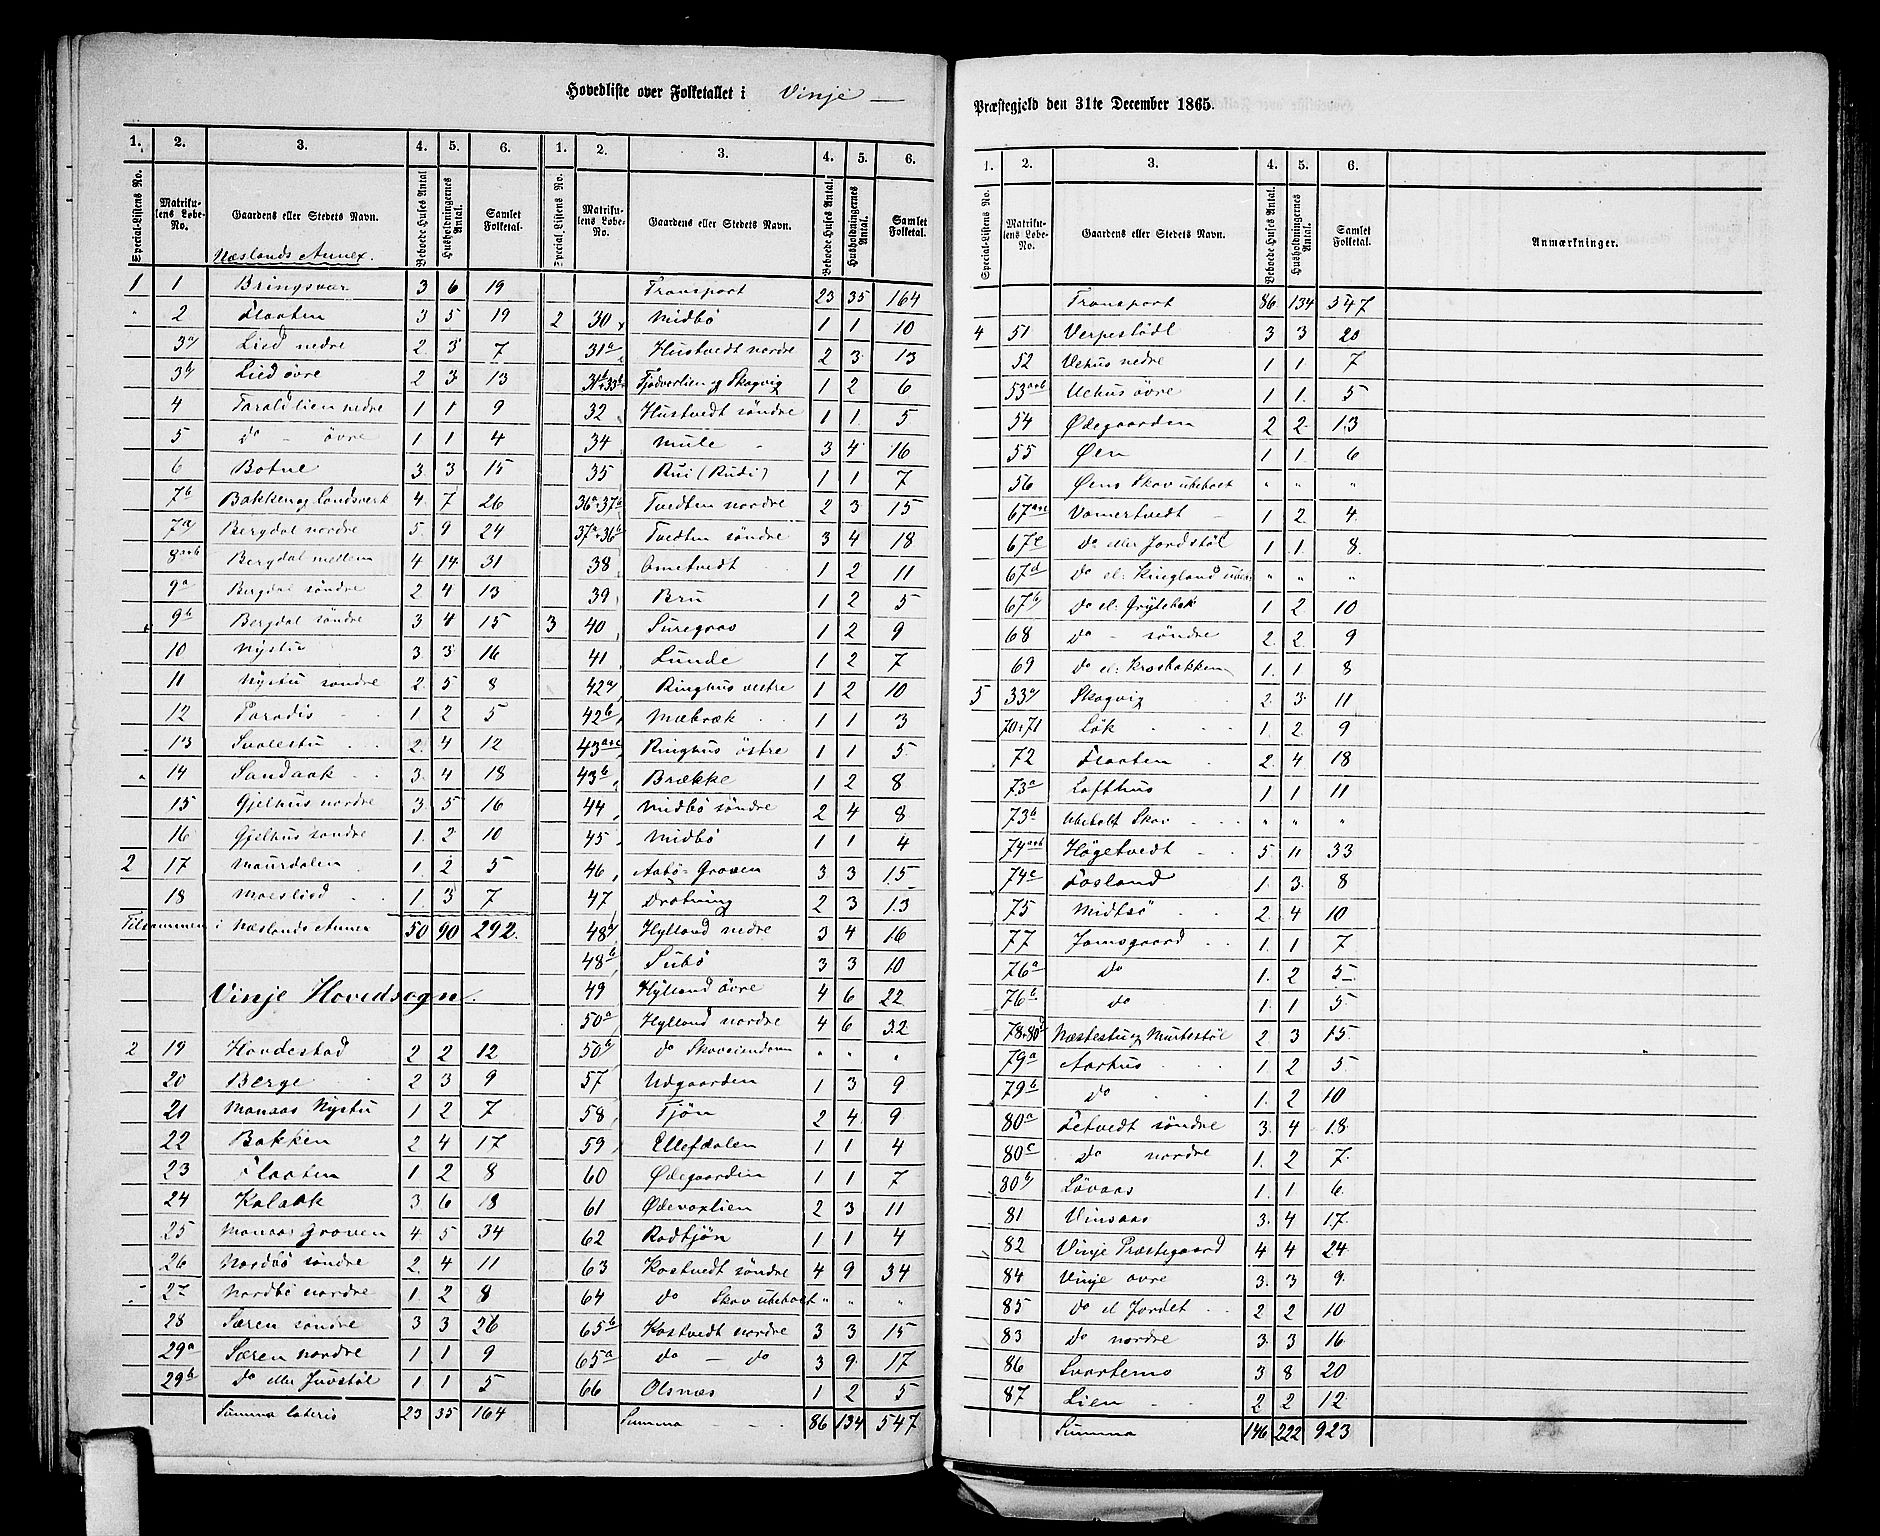 Hovedliste over Folketallet i Vinje —
1. 2. 3. 4. 5. 6. 1. 2. 3. 4. 5. 6.
Special-Listens No. Matrikulens Løbe-No. Gaardens eller Stedets Navn. Beboede Huses Antal Husholdningernes Antal. Samlet Folketal. Special-Listens No. Matrikulens Løbe-No. Gaardens eller Stedets Navn. Beboede Huses Antal. Husholdningernes Antal. Samlet Folketal.
Næslands Annex.
1 1 Bringsvær 3 6 19
" 2 Flaaten 3 5 19
3a Lied nedre 2 3 7
3b Lied øvre 2 3 13
4 Taraldlien nedre 1 1 9
5 Do - øvre 1 1 4
6 Botne 3 3 15
7b Bakken og Landsverk 4 7 26
7a Bergdal nordre 5 9 24
8a+b Bergdal mellem 4 14 31
9a Bergdal søndre 2 4 13
9b Bergdal søndre 3 4 15
10 Nystu 3 3 16
11 Nystu søndre 2 5 8
12 Paradis 1 2 5
13 Svalestu 2 4 12
14 Sandaak 3 4 18
15 Gjelhus nordre 3 5 16
16 Gjelhus søndre 1 2 10
2 17 Maurdalen 1 2 5
18 Moeslied 1 3 7
Tilsammen i Næslands Annex 50 90 292
Vinje Hovedsogn.
2 19 Hovdestad 2 2 12
20 Berge 2 3 9
21 Manaas Nystu 1 2 7
22 Bakken 2 4 17
23 Flaaten 1 2 8
24 Kalaak 3 6 18
25 Manaas Groven 4 5 34
26 Nordbø søndre 2 4 11
27 Nordbø nordre 1 2 8
28 Særen søndre 3 3 26
29a Særen nordre 1 1 9
29b Do eller Juvstøl 1 1 5
Summa lateris 23 35 164
Transport 23 35 164
2 30 Midbø 1 1 10
31a Hustvedt nordre 2 3 13
31b+33b Tjødverlien og Skagvig 1 2 6
32 Hustvedt søndre 1 1 5
34 Mule 3 4 16
35 Rui (Rudi) 1 1 7
36a+37b Tvedten nordre 2 3 15
37a+36b Tvedten søndre 3 4 18
38 Ametvedt 1 2 11
39 Bru 1 2 5
3 40 Suregrav 1 2 9
41 Lunde 1 2 7
42a Ringhus vestre 1 2 10
42b Mæbræk 1 1 3
43a+c Ringhus østre 1 1 5
43b Brække 1 2 8
44 Midbø søndre 2 4 8
45 Midbø 1 1 4
46 Aabø-Groven 3 3 15
47 Drotning 2 3 13
48a Hylland nedre 3 4 16
48b Subø 3 3 10
49 Hylland øvre 4 6 22
50a Hylland nordre 4 6 32
50b do Skoveiendom " " "
57 Udgaarden 1 3 9
58 Tjøn 2 4 9
59 Ellefdalen 1 1 4
60 Ødegaarden 1 1 7
61 Ødevaxlien 2 3 11
62 Rodtjøn 1 1 4
63 Kostvedt søndre 4 9 34
64 do Skov ubeboet " " "
65b Kostvedt nordre 3 3 15
65a do — do 3 9 17
66 Olsnæs 1 2 5
Summa 86 134 547
Præstegjeld den 31te December 1865.
1. 2. 3. 4. 5. 6.
Special-Listens No. Matrikulens Løbe-No. Gaardens eller Stedets Navn. Beboede Huses Antal. Husholdningernes Antal. Samlet Folketal. Anmærkninger.
Transport 86 134 547
4 51 Verpestødl 3 3 20
52 Uehus nedre 1 1 7
53a+b Uehus øvre 1 1 5
54 Ødegaarden 2 2 13
55 Øen 1 1 6
56 Øens Skov ubeboet " " "
67a+c Vamertvedt 1 2 4
67e Do eller Jordstøl 1 1 8
67d Do el: Kingland " " "
67b Do el: Grytebæk 1 2 10
68 Do - søndre 2 2 9
69 Do el: Krosbakken 1 1 8
5 33a Skagvig 2 3 11
70+71 Løk 1 2 9
72 Flaaten 2 4 18
73a Lofthus 1 1 11
73b Ubeboet Skov " " "
74a+b Høgetvedt 5 11 33
74c Fosland 1 3 8
75 Midtbø 2 4 10
77 Jamsgaard 1 1 7
76a Do 1 2 5
76b Do 1 1 5
78+80d Næstestu og Murtestøl 2 3 15
79a Aarhus 1 2 5
79b Do 1 2 10
80a Tetvedt søndre 3 4 18
80c Do nordre 1 2 7
80b Løvaas 1 1 6
81 Vinsaas 3 4 17
82 Vinje Præstegaard 4 4 24
84 Vinje øvre 3 3 9
85 Do el Jordet 2 2 10
83 Do nordre 3 3 16
86 Svartemo 3 8 20
87 Lien 2 2 12
Summa 146 222 923